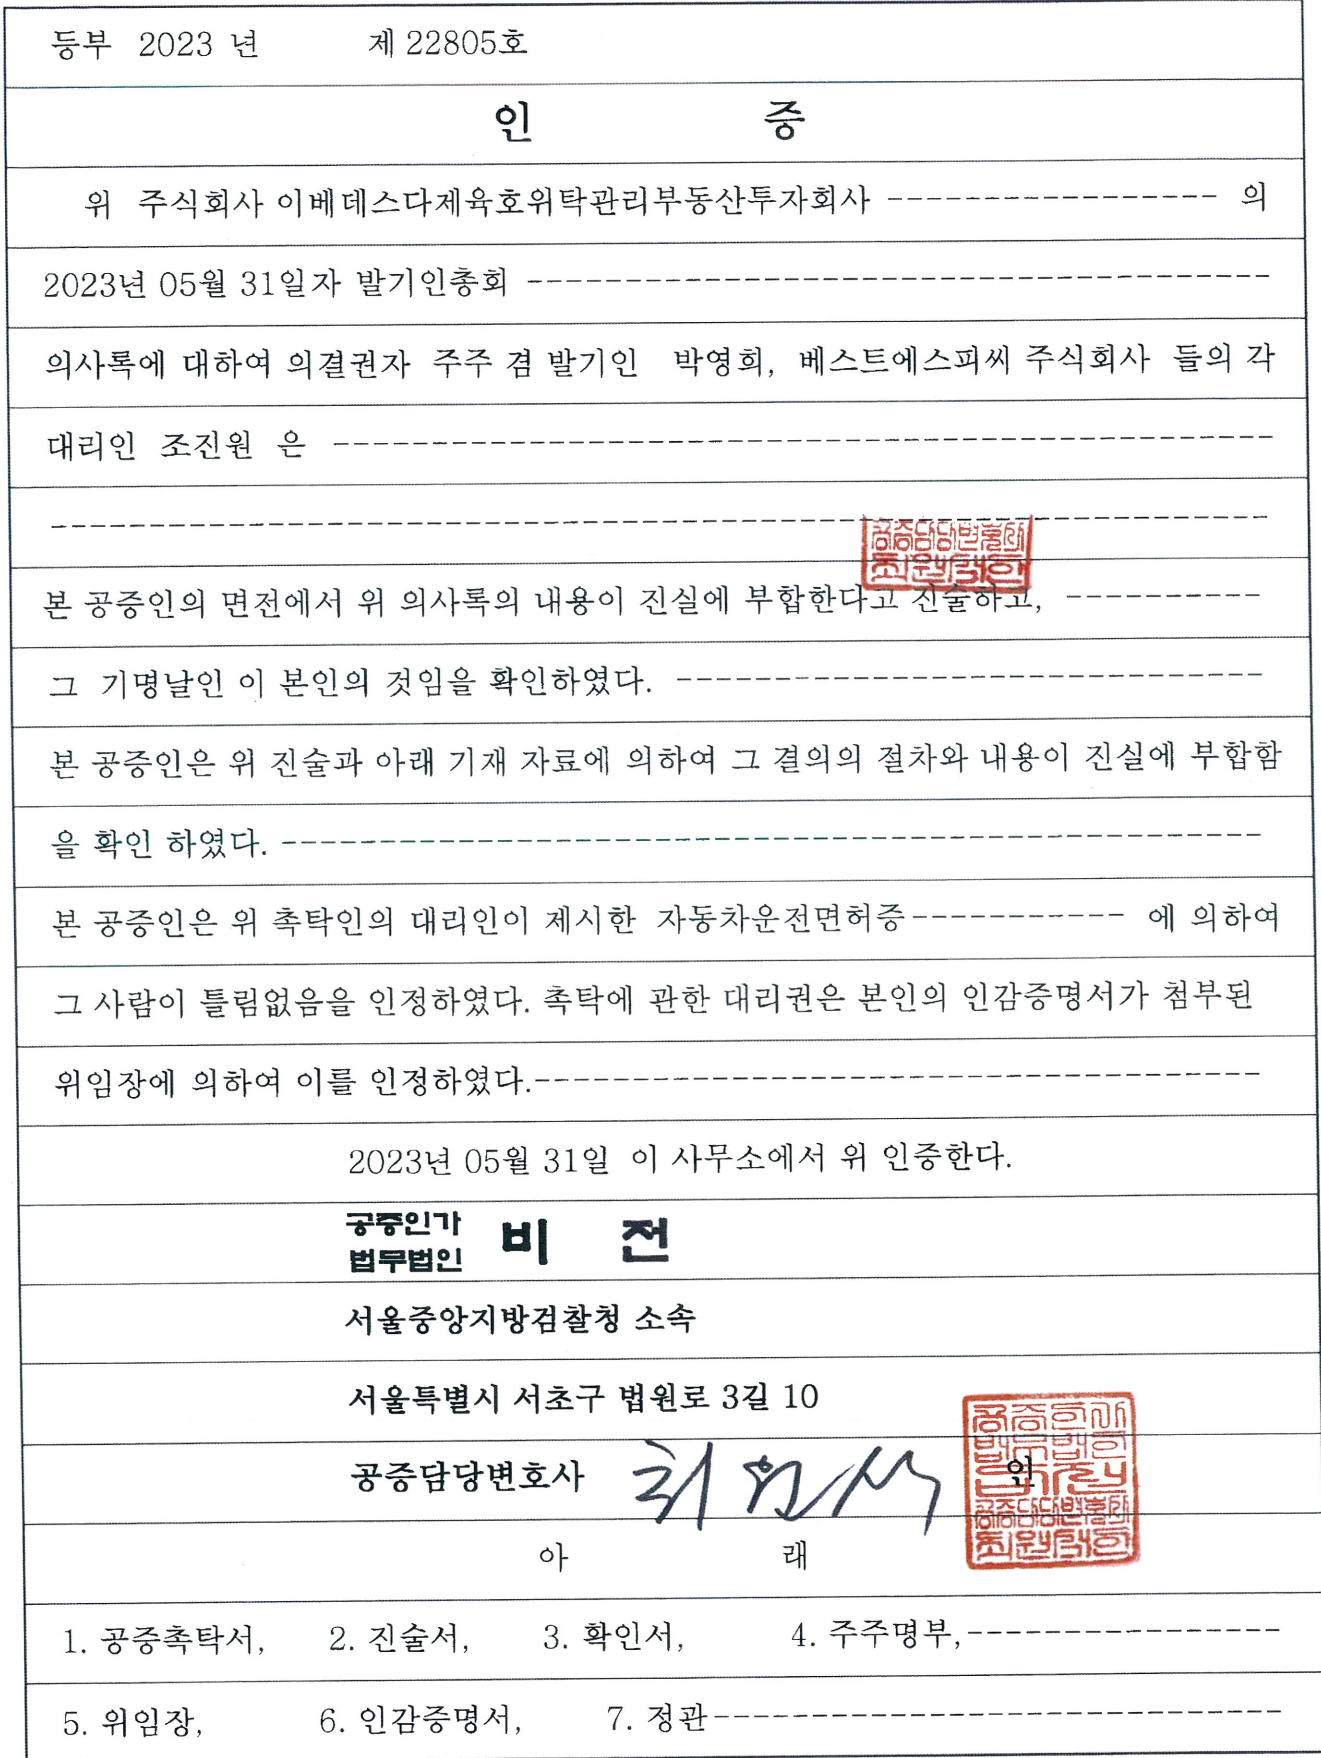 등부 2023 년 제 22805호
인 증
위 주식회사 이베데스다제육호위탁관리부동산투자회사 ----------------- 의
2023년 05월 31일자 발기인총회 --------------------------------------
의사록에 대하여 의결권자 주주 겸 발기인 박영희, 베스트에스피씨 주식회사 들의 각
대리인 조진원 은 ------------------------------------------------
--------------------------------------------------------------
공증담당변호사
최원석인
본 공증인의 면전에서 위 의사록의 내용이 진실에 부합한다고 진술하고, ----------
그 기명날인 이 본인의 것임을 확인하였다. ------------------------------
본 공증인은 위 진술과 아래 기재 자료에 의하여 그 결의의 절차와 내용이 진실에 부합함
을 확인 하였다. --------------------------------------------------
본 공증인은 위 촉탁인의 대리인이 제시한 자동차운전면허증----------- 에 의하여
그 사람이 틀림없음을 인정하였다. 촉탁에 관한 대리권은 본인의 인감증명서가 첨부된
위임장에 의하여 이를 인정하였다.-------------------------------------
2023년 05월 31일 이 사무소에서 위 인증한다.
공증인가
법무법인 비 전
서울중앙지방검찰청 소속
서울특별시 서초구 법원로 3길 10
공증담당변호사 최원석 인
공증인가
법무법인
비전
공증담당변호사
최원석인
아 래
1. 공증촉탁서, 2. 진술서, 3. 확인서, 4. 주주명부,----------------
5. 위임장, 6. 인감증명서, 7. 정관-----------------------------